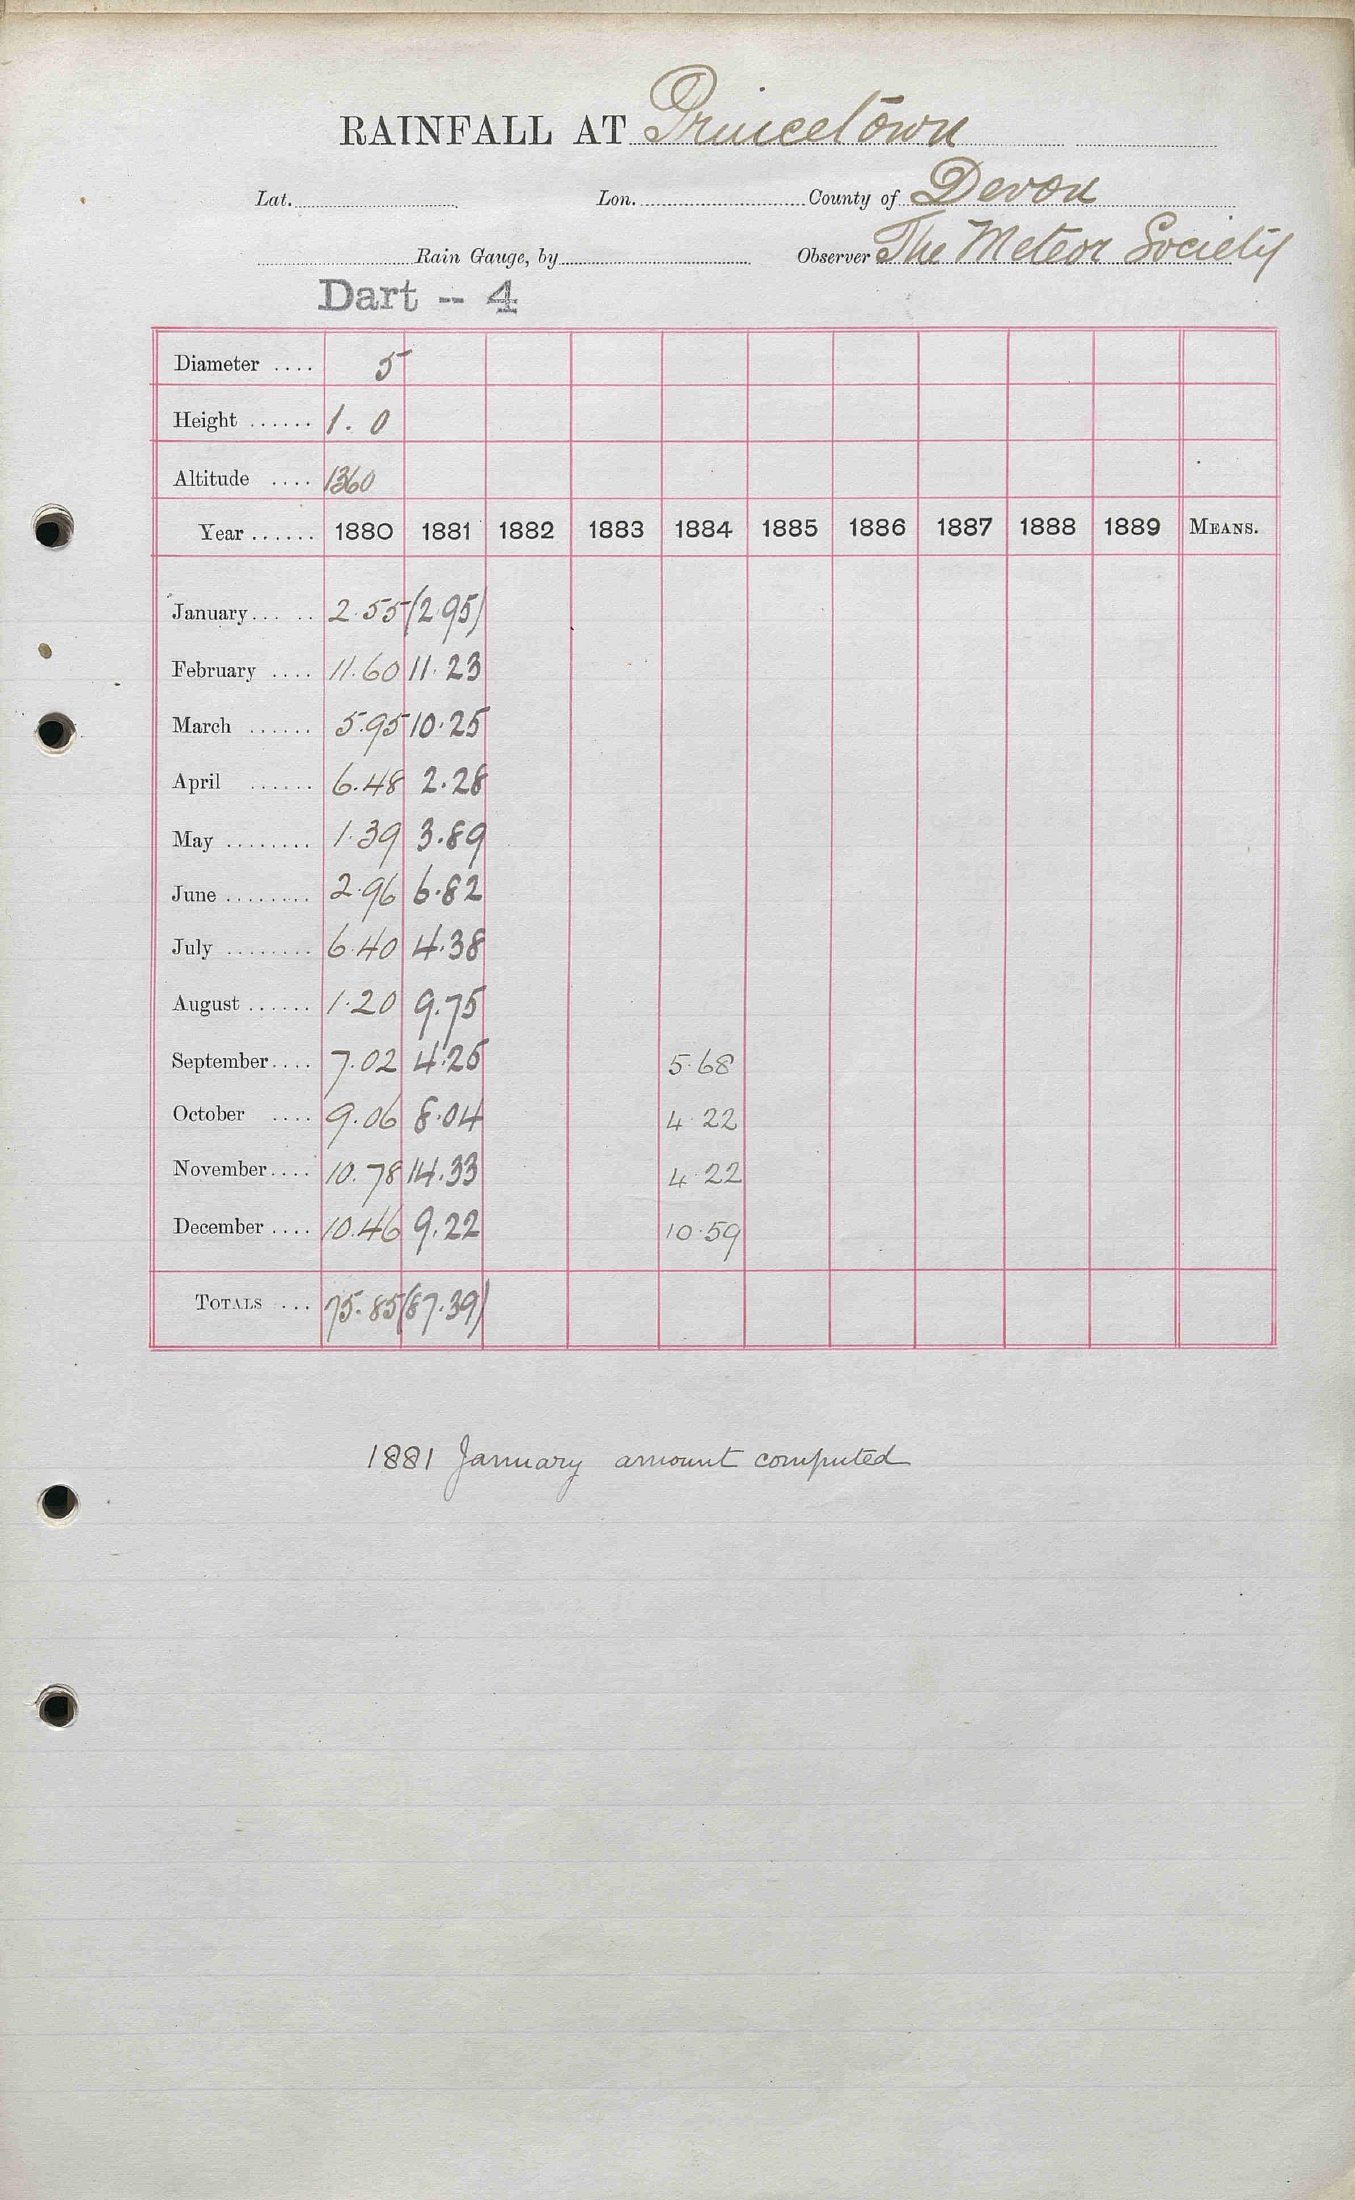 RAINFALL AT Princetown
Lat. Lon. County of Devon
Rain Gauge, by Observer The Meteor Society
Dart -- 4
Diameter .... 5
Height ...... 1. 0
Altitude .... 1360
Year ...... 1880 1881 1882 1883 1884 1885 1886 1887 1888 1889 MEANS.
January... .. 2.55 (2.95)
February .... 11.60 11.23
March ...... 5.95 10.25
April ...... 6.48 2.28
May ........ 1.39 3.89
June ........ 2.96 6.82
July ........ 6.40 4.38
August ...... 1.20 9.75
September.... 7.02 4.25 5.68
October .... 9.06 8.04 4.22
November.... 10.78 14.33 4.22
December .... 10.46 9.22 10.59
TOTALS ... 75.85 (87.39)
1881 January amount computed